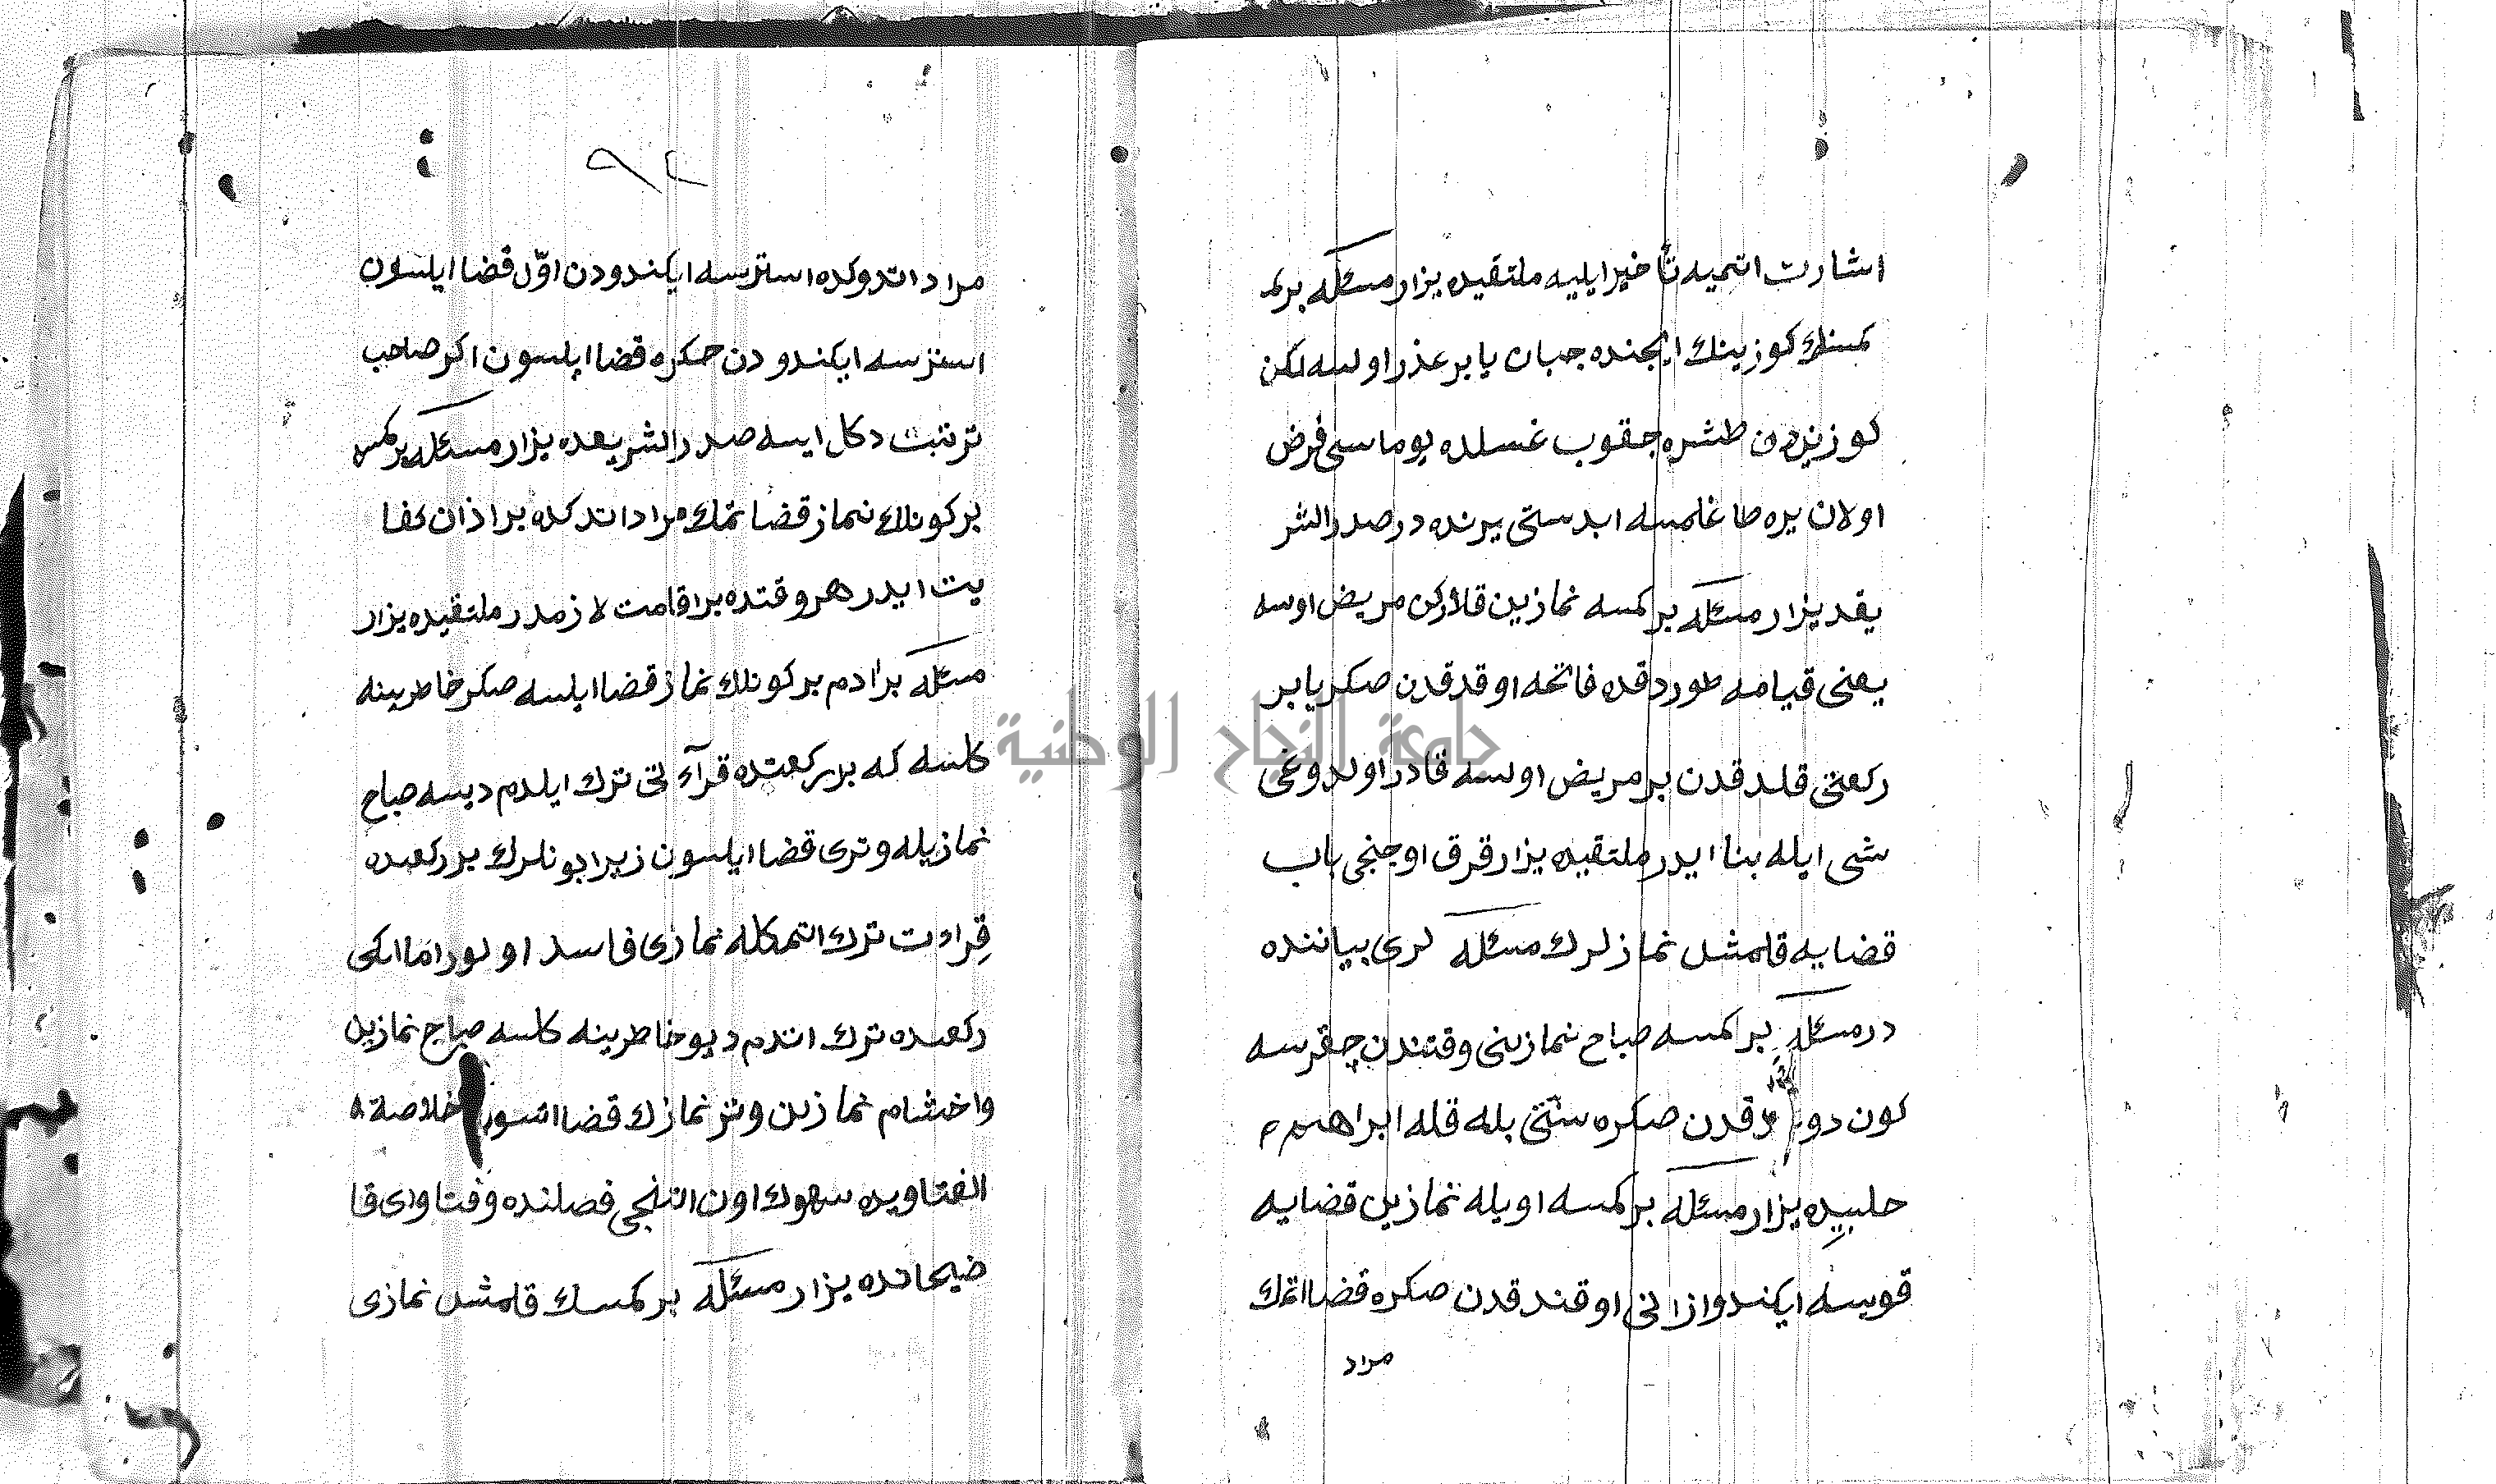 اشارت اتميه تأخير ايليه ملتقيده يزار مسئله بر كـ
كمسنك كوزينك ايچنده جبان يا بر عذر اولسه لكن
كوزندن طشره جقوب غسلده يوماسى فرض
اولان يره طاغلمسه ابدستى يرنده در صدر الشر
يقد يزار مسئله بر كمسه نمازين قلاركن مريض اوسه
يعنى قيامه طوردقده فاتحه اوقدقدن صكر يا بر
ركعتى قلدقدن بر مريض اولسه قادر اولدوغى
شى ايله بنا ايدر ملتقيده يزار قرق اوجنجى باب
قضايه قلمش نمازلرك مسئله لرى بياننده
در مسئله بر كمسه صباح نمازينى وقتندن چقرسه
كون دو قدن صكره سنتى بله قله ابراهيم
حلبيده يزار مسئله بر كمسه اويله نمازين قضايه
قويسه ايكندو ازانى اوقندقدن صكره قضا اتمك
مراد
٩٢
مراد اتدوكده استرسه ايكندودن اوّل قضا ايلسون
استرسه ايكندودن صكره قضا ايلسون اكر صاحب
ترتبت دكل ايسه صدر الشريعده يزار مسئله بر كمسه
بر كونلك نماز قضا اتمك مراد اتدكده بر اذان كفا
يت ايدر هر وقتده بر اقامت لازمدر ملتقيده يزار
مسئله بر ادم بر كونلك نماز قضا ايلسه صكر خاطرينه
كلسه كه بر ركعتده قرآءتى ترك ايلدم ديسه صباح
نمازيله وترى قضا ايلسون زيرا بونلرك بر ركعده
قراءت ترك اتمكله نمازى فاسد اولور اما ايكى
ركعده ترك اتدم ديو خاطرينه كلسه صباح نمازين
واخشام نمازين وتر نمازك قضا اتسون خلاصة ٥
الفتاويده سهوك اون التنجى فصلنده وفتاواى قا
ضيخانده يزار مسئله بر كمسك قلمش نمازى
جامعة النجاح الوطنية